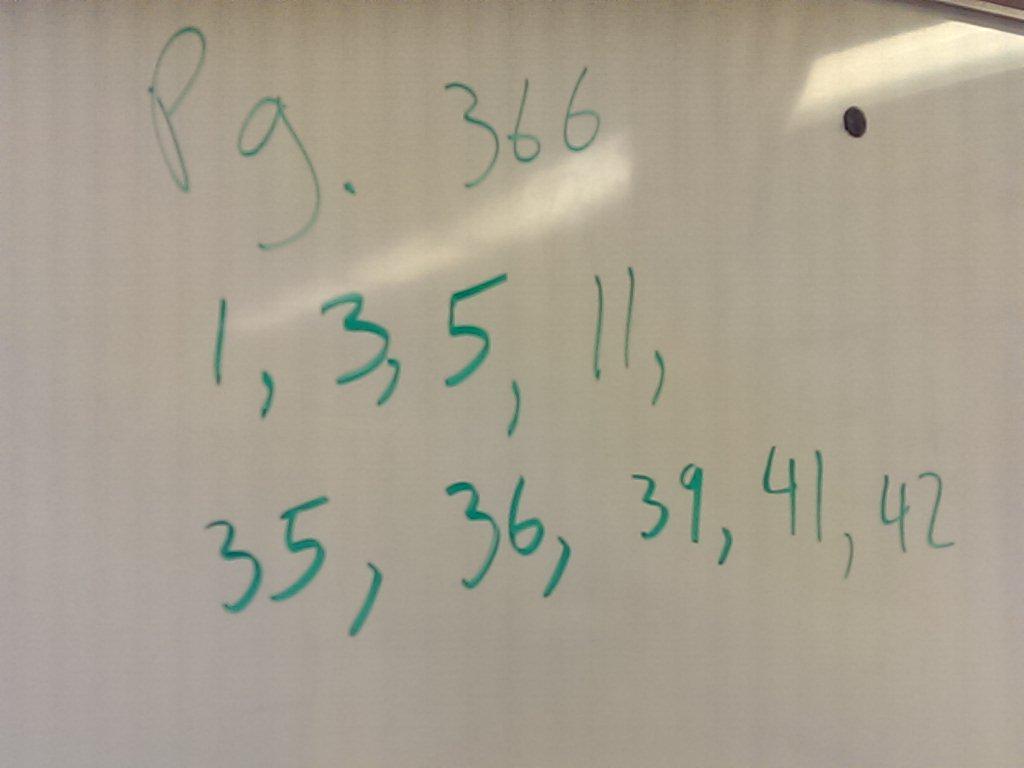 Pg. 366
1, 3, 5, 11,
35, 36, 39, 41, 42